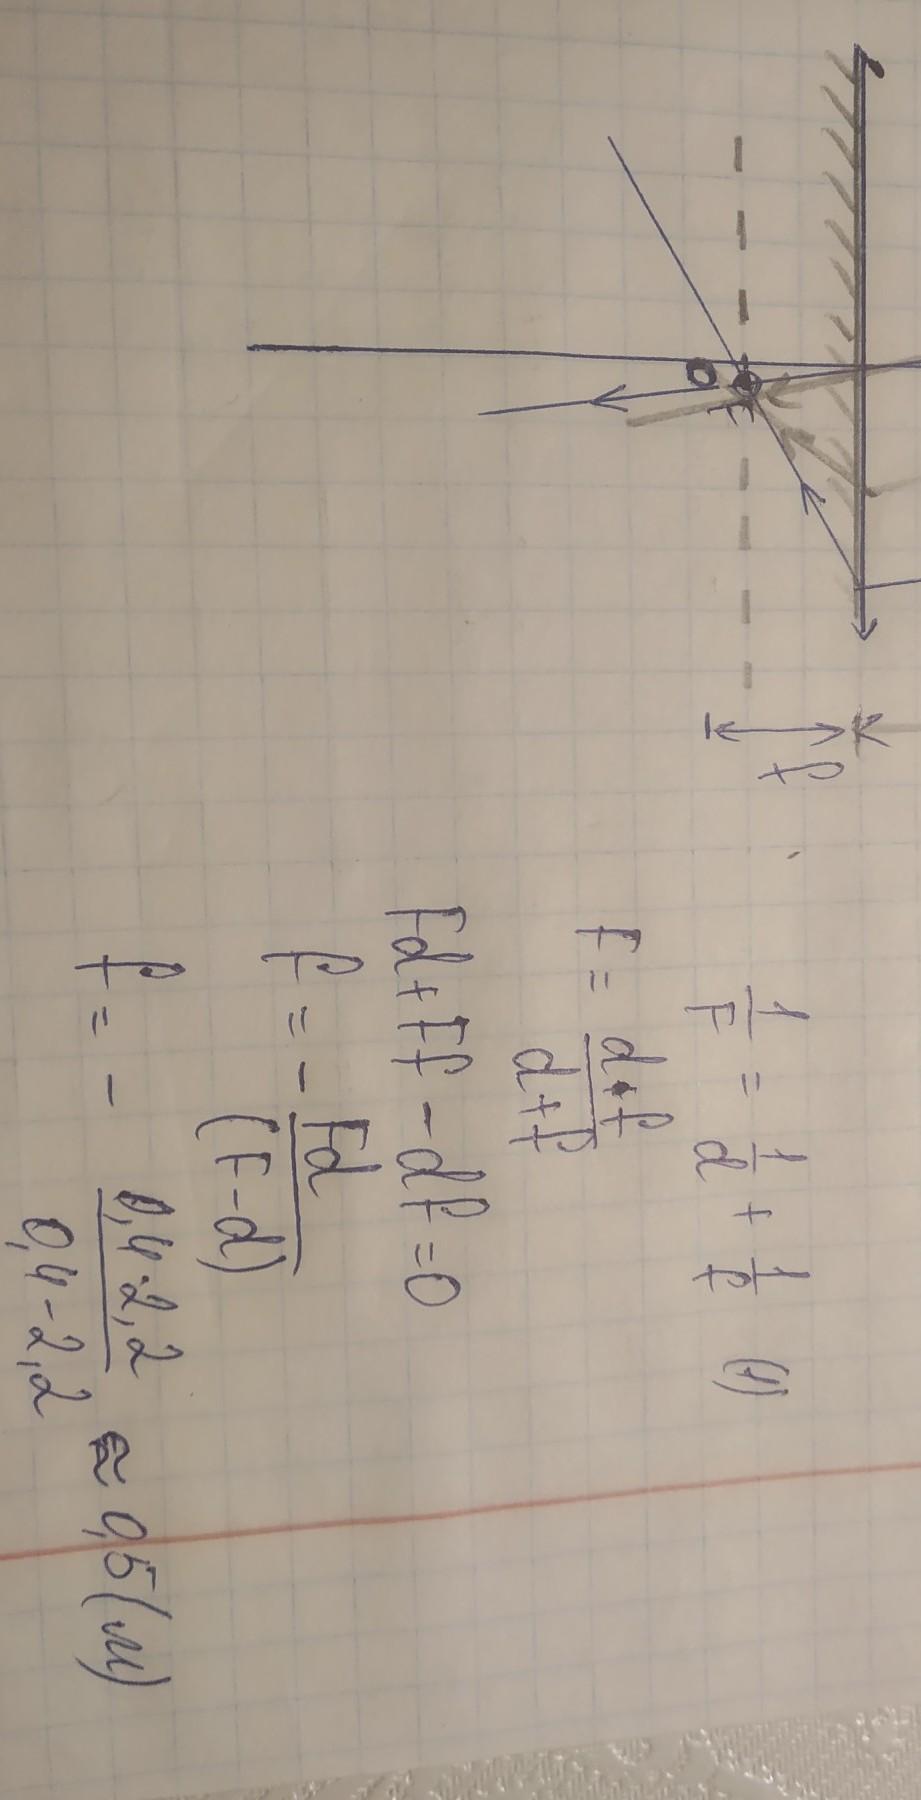 F
f
1/F = 1/d + 1/f (1)
F = d·f/d+f
Fd + Ff - df = 0
f = - Fd/(F-d)
f = - 0,4·2,2/0,4-2,2 ≈ 0,5 (м)